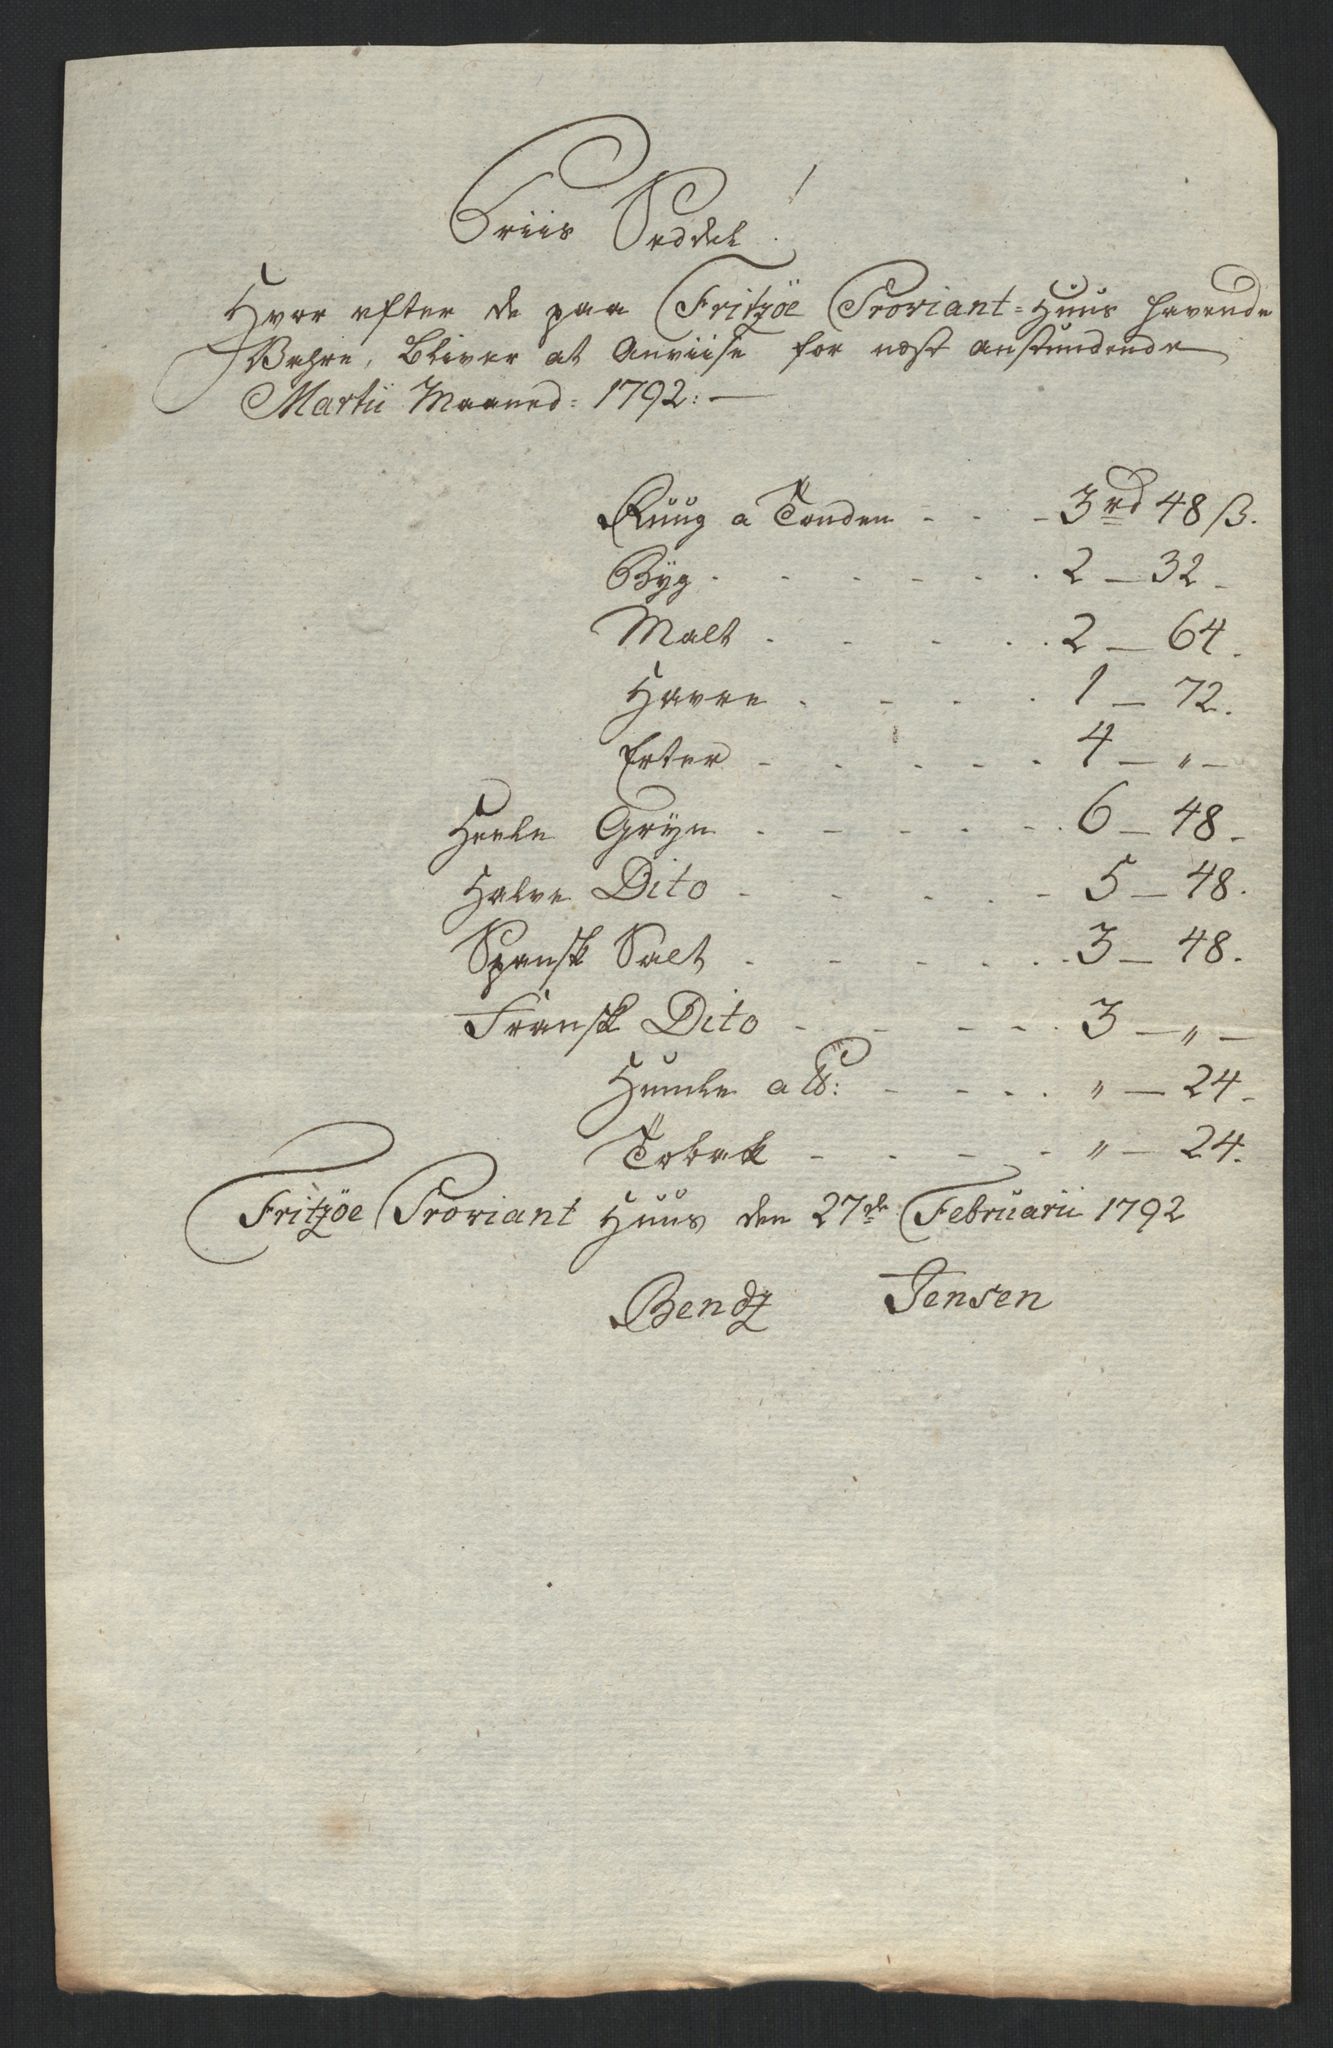 Priis Seddel!
Hvor efter de paa Fritzöe Proviant=Huus havende
Vahre, bliver at Anviise for næst anstundende
Martii Maaned: 1792:—
Ruug a Tønden - - - 3 rd 48 ß.
Byg - - - - - - 2 — 32 -
Malt - - - - 2 — 64.
Havre - - - - 1 — 72.
Erter - - - - - 4 — „ —
Heele Gryn - - - - - 6 — 48 -
Halve Dito - - - - - 5 — 48.
Spansk Salt - - - - - 3 — 48.
Fransk Dito - - - - - 3 — „ —
Humle a ℔: - - - - „ — 24 -
Tobak - - - - „ — 24.
Fritzöe Proviant Huus den 27de Februarii 1792
Bendz Jensen